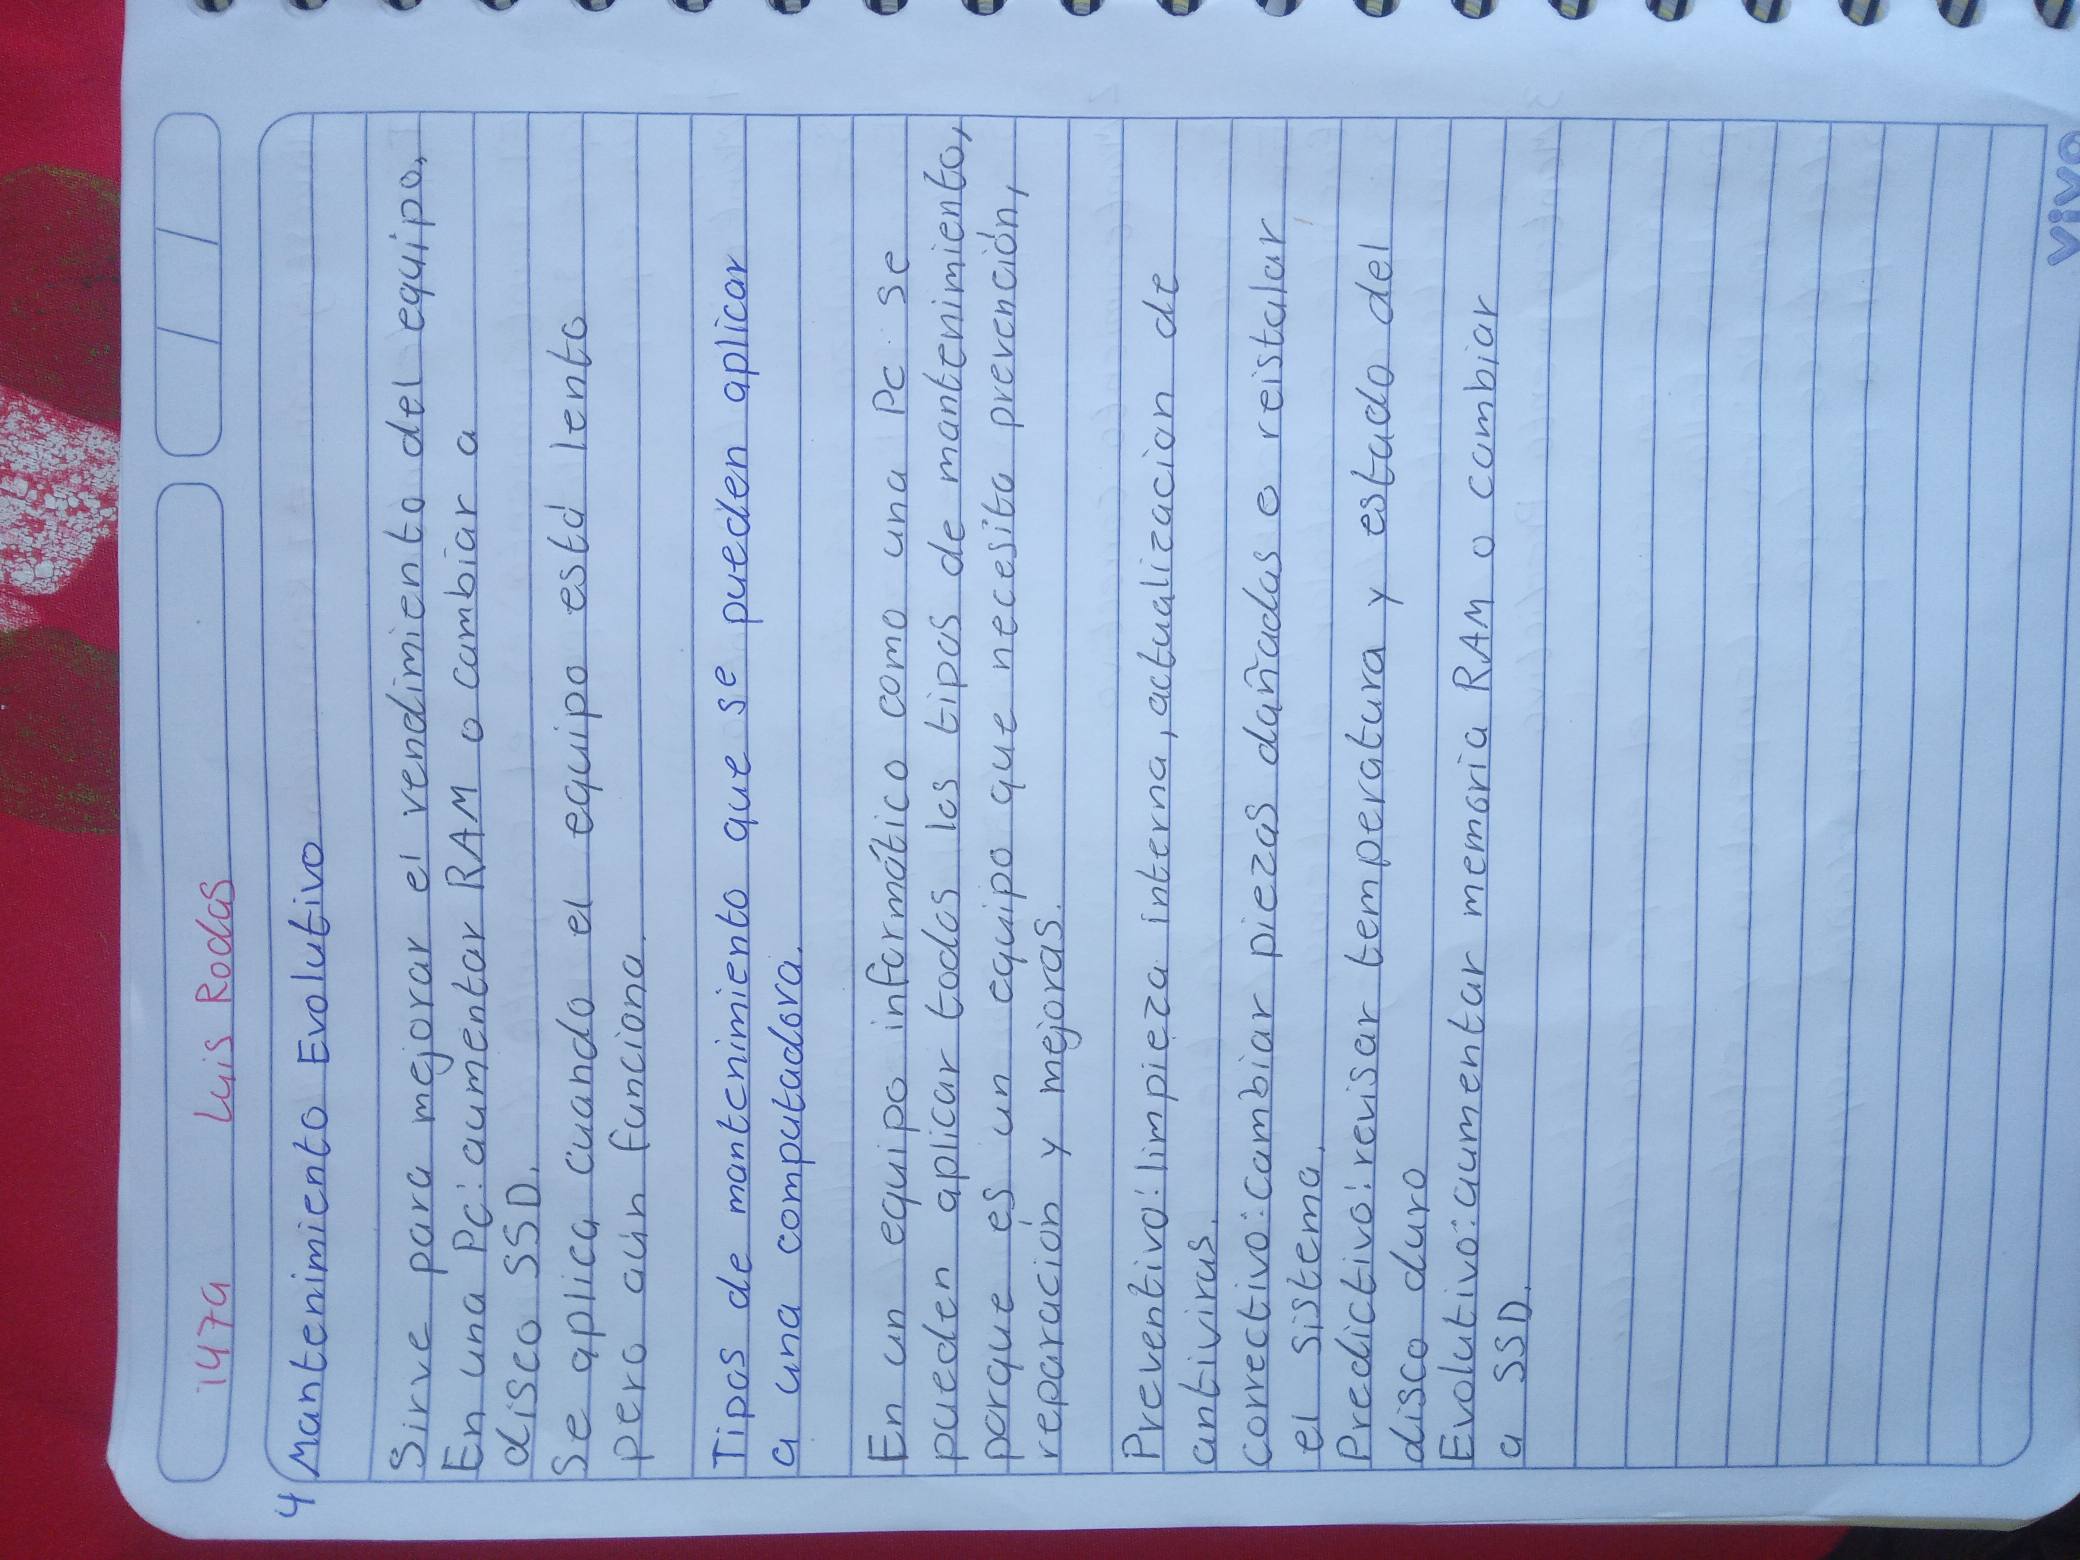 1479 Luis Rodas
4 Mantenimiento Evolutivo
Sirve para mejorar el rendimiento del equipo,
En una Pc: aumentar RAM o cambiar a
disco SSD.
Se aplica cuando el equipo está lento
pero aún funciona.
Tipos de mantenimiento que se pueden aplicar
a una computadora.
En un equipo informático como una Pc se
pueden aplicar todos los tipos de mantenimiento,
porque es un equipo que necesita prevención,
reparación y mejoras.
Preventivo: limpieza interna, actualizacion de
antivirus.
correctivo: cambiar piezas dañadas o reistalar
el sistema.
Predictivo: revisar temperatura y estado del
disco duro
Evolutivo: aumentar memoria RAM o cambiar
a SSD.
vivo